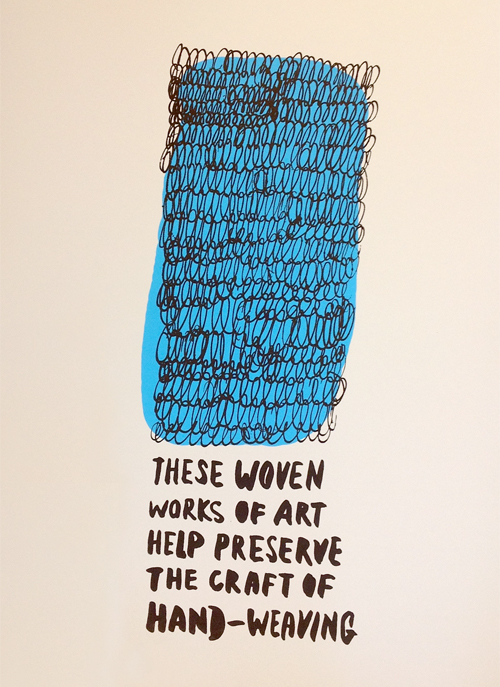 THESE WOVEN
WORKS OF ART
HELP PRESERVE
THE CRAFT OF
HAND-WEAVING